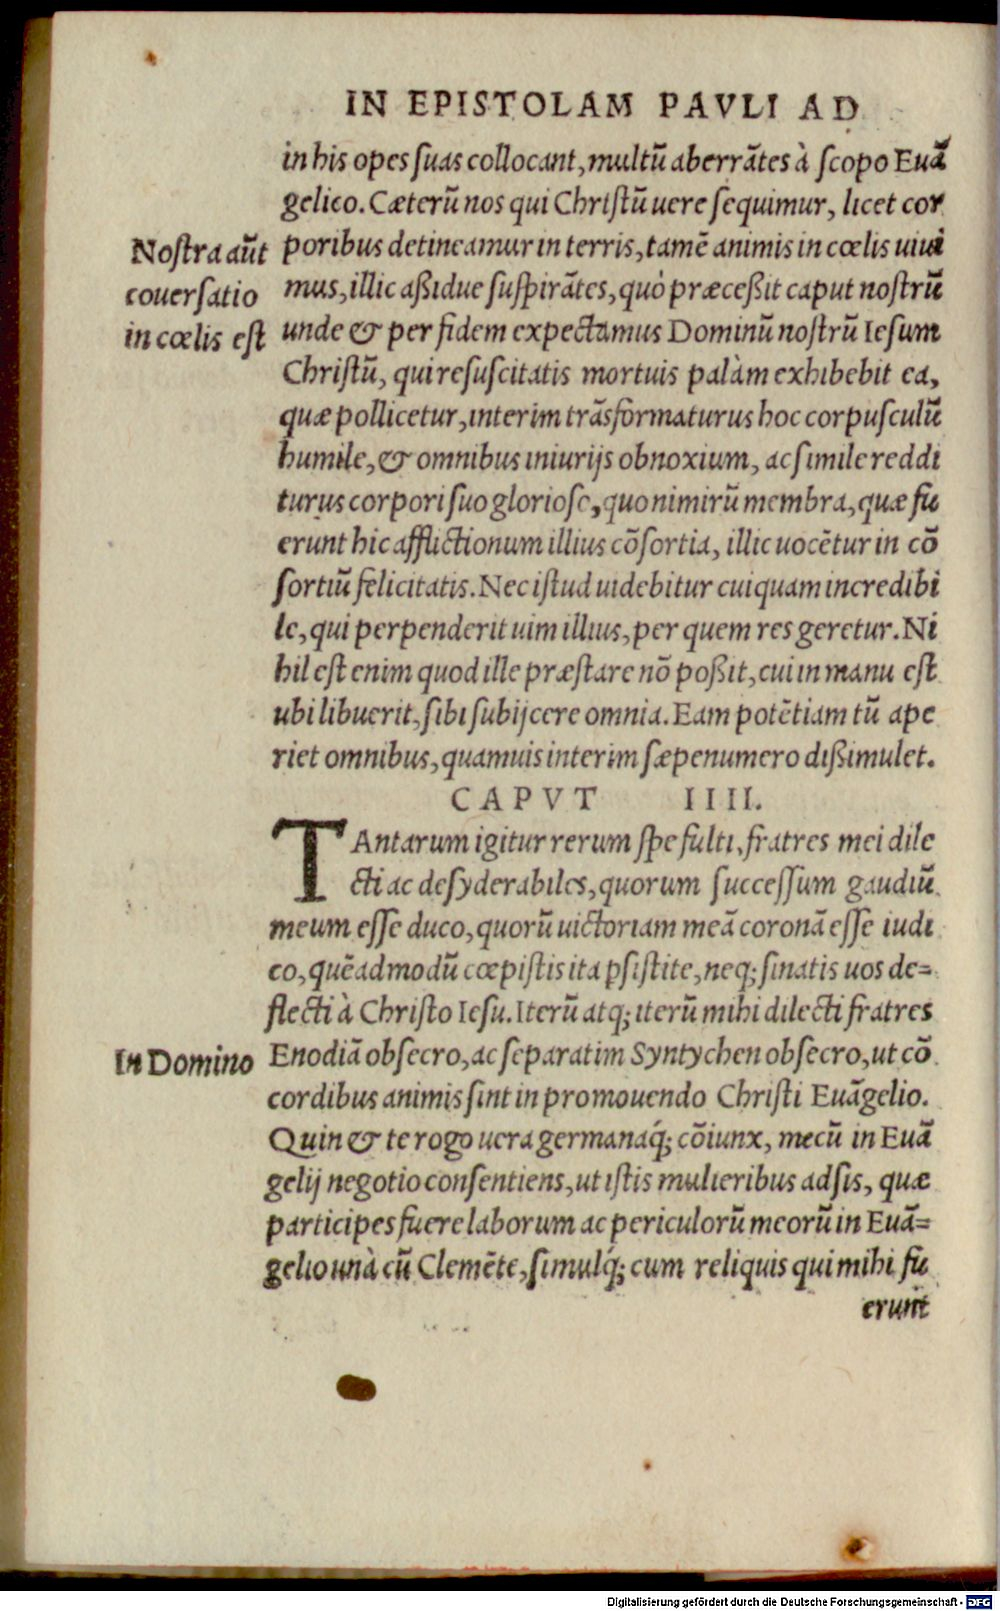 IN EPISTOLAM PAVLI AD
in his opes suas collocant, multũ aberrãtes à scopo Euã
gelico. Cæterũ nos qui Christũ uere sequimur, licet cor
poribus detineamur in terris, tamẽ animis in cœlis uiui
mus, illic aßidue suspirãtes, quò præceßit caput nostrũ
unde & per fidem expectamus Dominũ nostrũ Iesum
Christũ, qui resuscitatis mortuis palàm exhibebit ea,
quæ pollicetur, interim trãsformaturus hoc corpusculũ
humile, & omnibus iniurijs obnoxium, ac simile reddi
turus corpori suo glorioso, quo nimirũ membra, quæ fu
erunt hic afflictionum illius cõsortia, illic uocẽtur in cõ
sortiũ felicitatis. Nec istud uidebitur cuiquam incredibi
le, qui perpenderit uim illius, per quem res geretur. Ni
hil est enim quod ille præstare nõ poßit, cui in manu est
ubi libuerit, sibi subijcere omnia. Eam potẽtiam tũ ape
riet omnibus, quamuis interim sæpenumero dißimulet.
Nostra aũt
couersatio
in cœlis est
CAPVT IIII.
TAntarum igitur rerum spe fulti, fratres mei dile
cti ac desyderabiles, quorum successum gaudiũ
meum esse duco, quorũ uictoriam meã coronã esse iudi
co, quẽadmodũ cœpistis ita ꝑsistite, neq; sinatis uos de=
flecti à Christo Iesu. Iterũ atq; iterũ mihi dilecti fratres
Enodiã obsecro, ac separatim Syntychen obsecro, ut cõ
cordibus animis sint in promouendo Christi Euãgelio.
Quin & te rogo uera germanaq́; cõiunx, mecũ in Euã
gelij negotio consentiens, ut istis mulieribus adsis, quæ
participes fuere laborum ac periculorũ meorũ in Euã=
gelio unà cũ Clemẽte, simulq́; cum reliquis qui mihi fu
erunt
In Domino
Digitalisierung gefördert durch die Deutsche Forschungsgemeinschaft - DFG